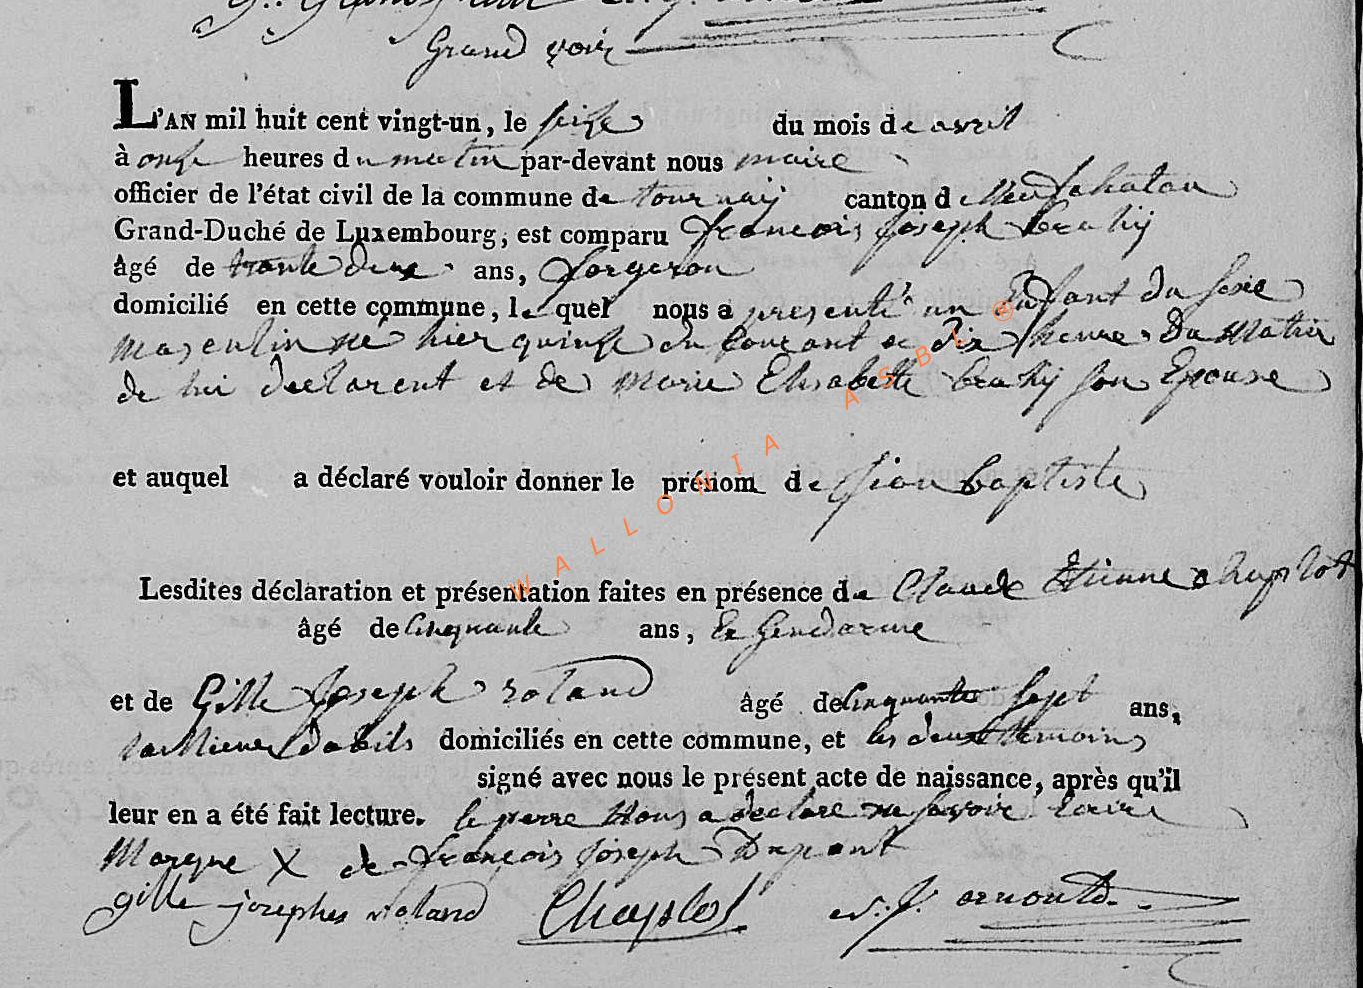 Grand voir
L'AN mil huit cent vingt-un, le seize du mois de avril
à onze heures du matin par-devant nous maire
officier de l'état civil de la commune de tournay canton de Neufchatau
Grand-Duché de Luxembourg, est comparu françois joseph
âgé de trante deux ans, forgeron
domicilié en cette commune, lequel nous a presenté un Enfant du sexe
masculin né hier quinze du courant a dix heure Du Matin
de lui declarent et de Marie Elisabethe son Epouse
et auquel a déclaré vouloir donner le prénom de jean baptiste
Lesdites déclaration et présentation faites en présence de Claude Etienne chaplot
âgé de Cinquante ans, Ex Gendarme
et de Gille Joseph roland âgé de cinquante sept ans,
domiciliés en cette commune, et les deux temoins
signé avec nous le présent acte de naissance, après qu'il
leur en a été fait lecture. le perre Nous a declare ne savoir Ecrire
Marque X de françois joseph Dupont
gille josephes roland Chaplot arnould
WALLONIA ASBL ®